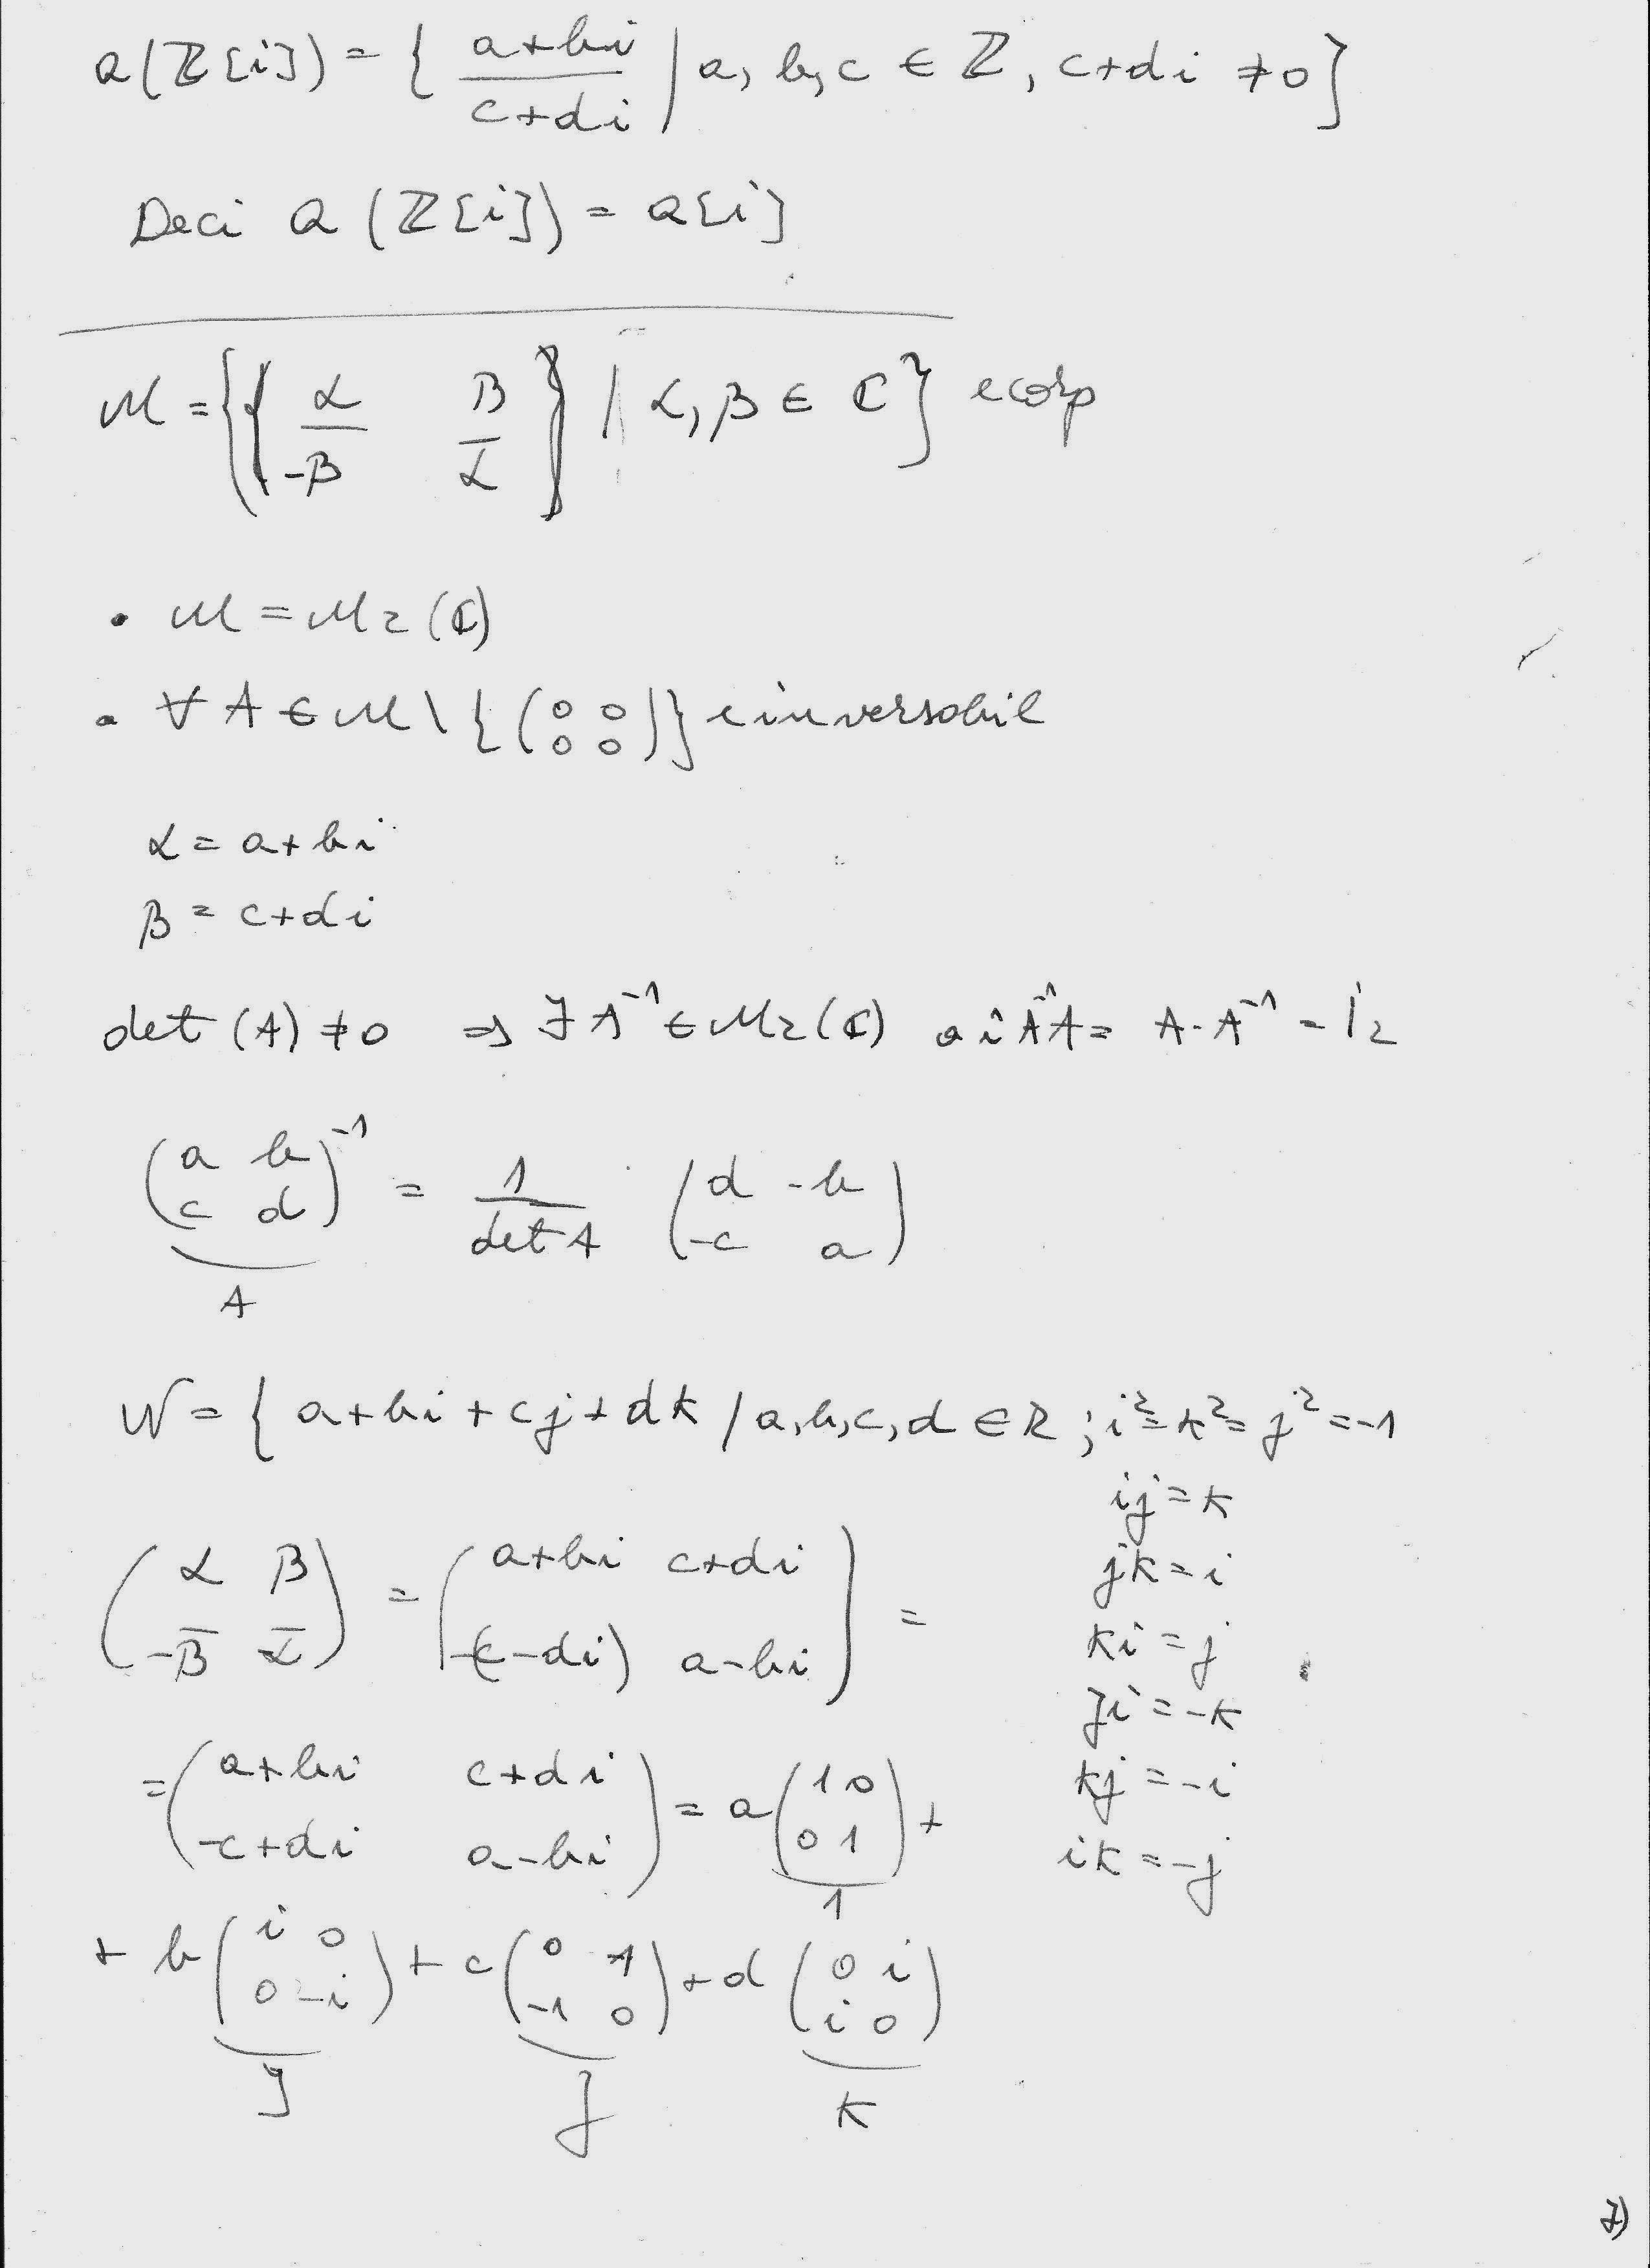 Q(ℤ[i]) = { (a+bi)/(c+di) | a, b, c ∈ ℤ, c+di ≠ 0 }
Deci Q(ℤ[i]) = Q[i]
M = { ( α β ; -β̄ ᾱ ) | α, β ∈ ℂ } e corp
• M = M₂(ℂ)
• ∀ A ∈ M \ { ( 0 0 ; 0 0 ) } e inversabil
α = a+bi
β = c+di
det (A) ≠ 0 ⇒ ∃ A⁻¹ ∈ M₂(ℂ) aî A⁻¹A = A·A⁻¹ = I₂
( a b ; c d )⁻¹ = 1/det A · ( d -b ; -c a )
A
N = { a+bi+cj+dk / a,b,c,d ∈ R ; i²=k²=j²=-1
ij = k
jk = i
ki = j
ji = -k
kj = -i
ik = -j
( α β ; -β̄ ᾱ ) = ( a+bi c+di ; -(c-di) a-bi ) =
= ( a+bi c+di ; -c+di a-bi ) = a ( 1 0 ; 0 1 ) +
1
+ b ( i 0 ; 0 -i ) + c ( 0 1 ; -1 0 ) + d ( 0 i ; i 0 )
I j K
7)